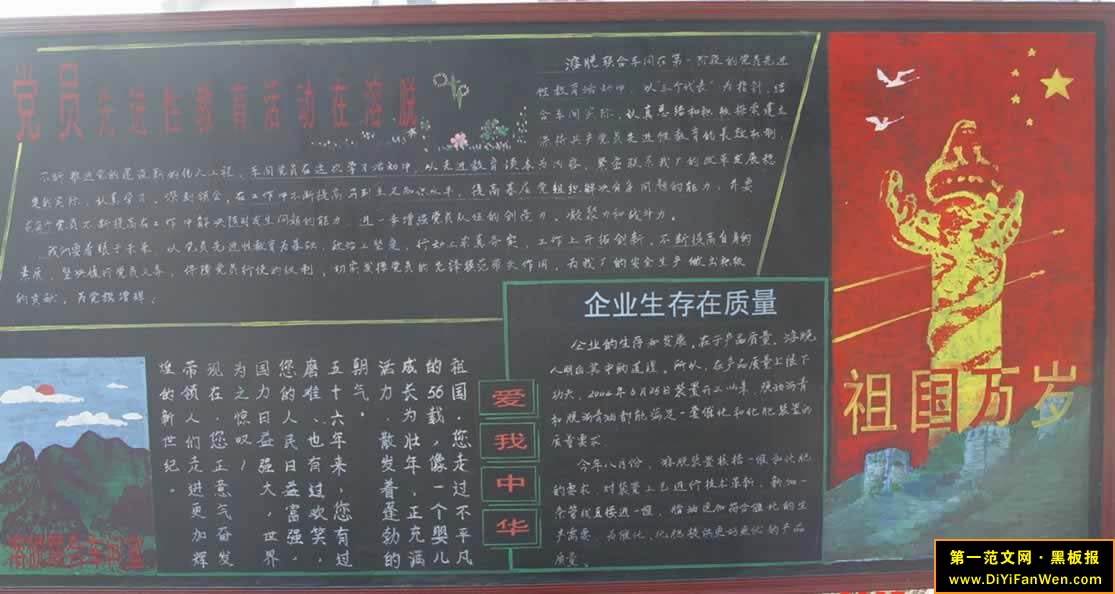 党员先进性教育活动在溶脱
溶脱联合车间在第一阶段的党员先进
性教育活动中，以“三个代表”为指针，结
合车间实际，认真总结和积极探索建立
保持共产党员先进性教育的长效机制，
不断推进党的建设新的伟大工程，车间党员在这次学习活动中，以先进教育读本为内容，紧密联系我厂的改革发展稳
定的实际，认真学习，深刻领会，在工作中不断提高马列主义知识水平，提高基层党组织解决自身问题的能力，并要
求每个党员不断提高在工作中解决随时发生问题的能力，进一步增强党员队伍的创造力、凝聚力和战斗力。
我们要着眼于未来，以党员先进性教育为基础，政治上坚定，行动上求真务实，工作上开拓创新，不断提高自身的
素质，坚决履行党员义务，保障党员行使的权利，切实发挥党员的先锋模范带头作用，为我厂的安全生产做出积极
的贡献，为党旗增辉。
企业生存在质量
企业的生存和发展，在于产品质量，溶脱
人明白其中的道理。所以，在产品质量上狠下
功夫，2004年5月25日装置开工以来，脱油沥青
和脱沥青油都能满足一套催化和化肥装置的
质量要求。
今年八月份，溶脱装置根据一催和化肥
的要求，对装置工艺进行技术革新，新加一
条管线直接进一催，
产需要，为催化、化肥提供更好更优的产品
质量。
祖国，您走过不平凡
的56载，像一个婴儿
成长为壮年，正充满
活力，散发着蓬勃的
朝气。
五十六年来，您有过
磨难，也有过欢笑，
您的人民日益富强，
国力日益强大，世界
为之惊叹！
现在您正意气奋发
带领人们走进更加辉
煌的新世纪。
爱
我
中
华
祖国万岁
溶脱联合车间宣
第一范文网·黑板报
www.DiYiFanWen.com